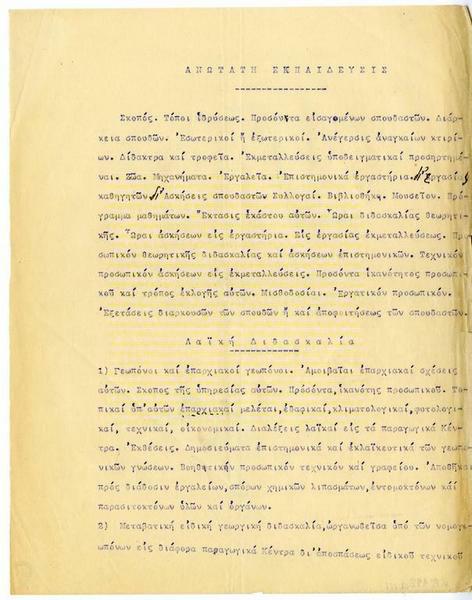 ΑΝΩΤΑΤΗ ΣΚΠΑΙΔΕΥΣΙΣ
Σκοπός. Τόποι ἱδρύσεως. Προσόντα εἰσαγομένων σπουδαστῶν. Διάρ-
κεια σπουδῶν. Ἐσωτερικοί ἤ ἐξωτερικοί. Ἀνέγερσις ἀναγκαίων κτιρί-
ων. Δίδακτρα καί τροφεῖα. Ἐκμεταλλεύσεις ὑποδειγματικαί προσηρτημέ-
ναι. Ζῶα. Μηχανήματα. Ἐργαλεῖα. Ἐπιστημονικά ἐργαστήρια. Ἐργασίαι
καθηγητῶν. Ἀσκήσεις σπουδαστῶν Συλλογαί. Βιβλιοθήκη. Μουσεῖον. Πρό-
γραμμα μαθημάτων. Ἔκτασις ἑκάστου αὐτῶν. Ὧραι διδασκαλίας θεωρητι-
κῆς. Ὧραι ἀσκήσεων εἰς ἐργαστήρια. Εἰς ἐργασίας ἐκμεταλλεύσεως. Πρ
σωπικόν θεωρητικῆς διδασκαλίας καί ἀσκήσεων ἐπιστημονικῶν. Τεχνικόν
προσωπικόν ἀσκήσεων εἰς ἐκμεταλλεύσεις. Προσόντα ἱκανότητος προσωπι-
κοῦ καί τρόπος ἐκλογῆς αὐτῶν. Μισθοδοσίαι. Ἐργατικόν προσωπικόν.
Ἐξετάσεις διαρκουσῶν τῶν σπουδῶν ἤ καί ἀποφοιτήσεως τῶν σπουδαστῶν.
Λαϊκή Διδασκαλία
1) Γεωπόνοι καί ἐπαρχιακοί γεωπόνοι. Ἀμοιβαῖαι ἐπαρχιακαί σχέσεις
αὐτῶν. Σκοπος τῆς ὑπηρεσίας αὐτῶν. Πρόσόντα, ἱκανότης προσωπικοῦ. Το-
πικαί ὑπ' αὐτῶν ἐπαρχιακαί μελέται, ἐδαφικαί, κλιματολογικαί, φυτολογι-
καί, τεχνικαί, οἰκονομικαί. Διαλέξεις λαϊκαί εἰς τά παραγωγικά Κέν-
τρα. Ἐκθέσεις. Δημοσιεύματα ἐπιστημονικά καί ἐκλαϊκευτικά τῶν γεωπο-
νικῶν γνώσεων. Βοηθητικόν προσωπικόν τεχνικόν καί γραφείου. Ἀποθῆκαι
πρός διάδοσιν ἐργαλείων, σπόρων χημικῶν λιπασμάτων, ἐντομοκτόνων καί
παρασιτοκτόνων ὑλῶν καί ὀργάνων.
2) Μεταβατική εἰδική γεωργική διδασκαλία, ὀργανωθεῖσα ὑπό τῶν νομογε-
ωπόνων εἰς διάφορα παραγωγικά Κέντρα δι' ἀποσπάσεως εἰδικοῦ τεχνικοῦ